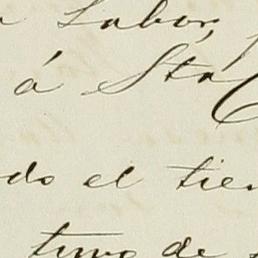 Labor,
á Sta
do el tie
tuvo de